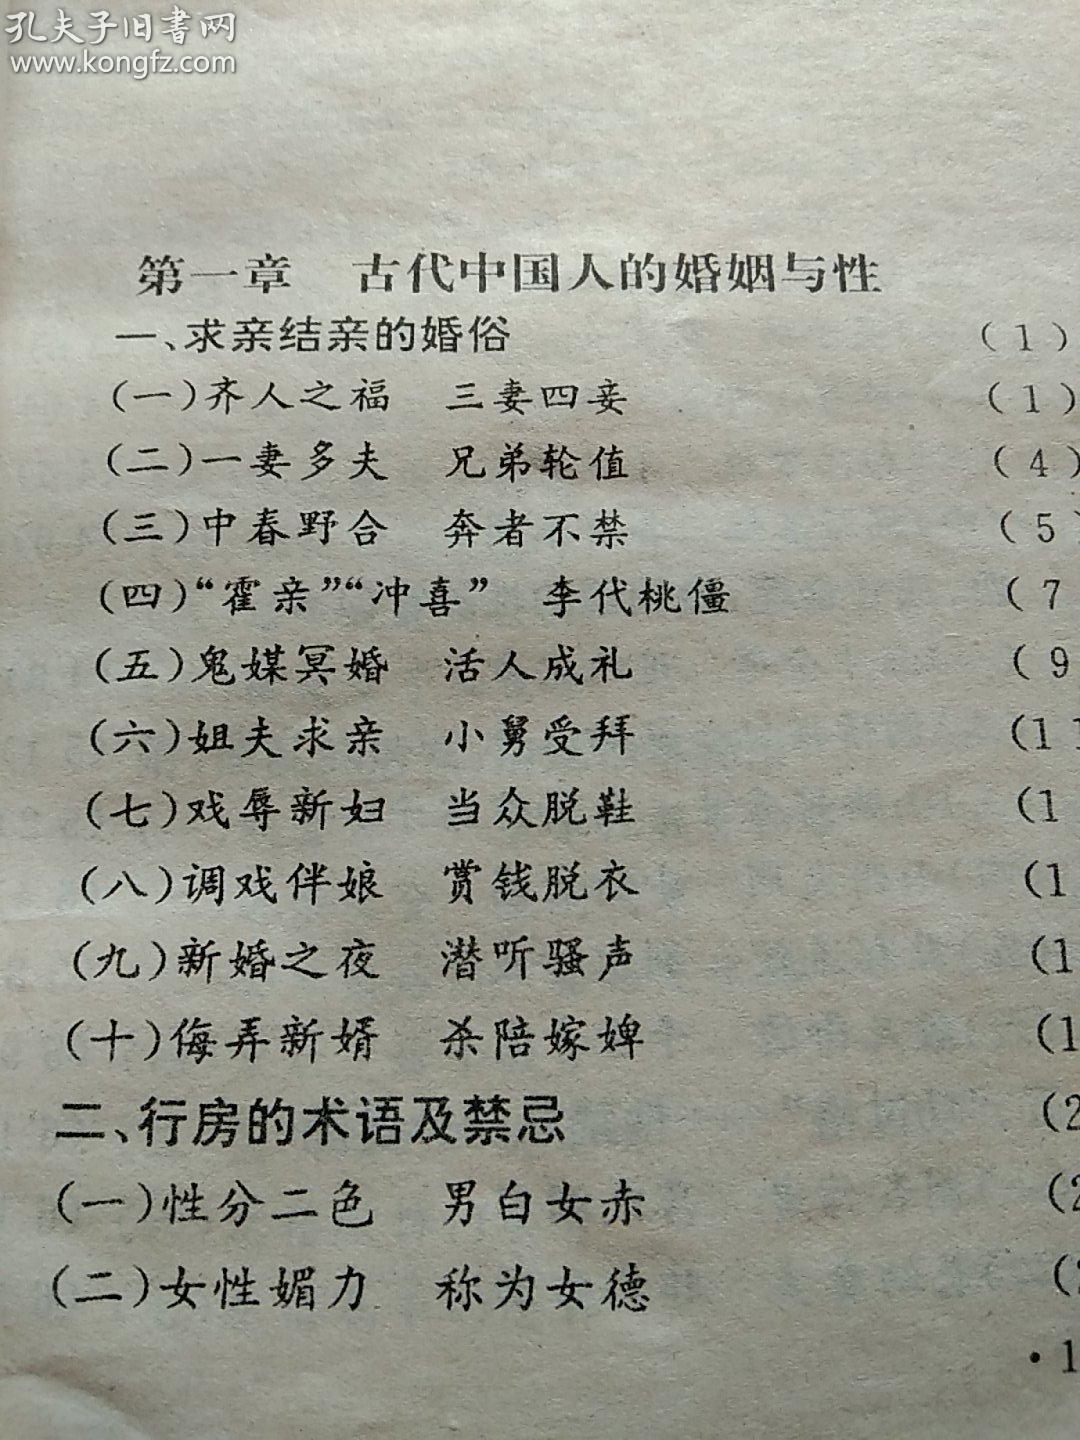 孔夫子旧书网
www.kongfz.com
第一章 古代中国人的婚姻与性
一、求亲结亲的婚俗 (1)
(一)齐人之福 三妻四妾 (1)
(二)一妻多夫 兄弟轮值 (4)
(三)中春野合 奔者不禁 (5)
(四)“霍亲”“冲喜” 李代桃僵 (7
(五)鬼媒冥婚 活人成礼 (9
(六)姐夫求亲 小舅受拜 (11
(七)戏辱新妇 当众脱鞋 (1
(八)调戏伴娘 赏钱脱衣 (1
(九)新婚之夜 潜听骚声 (1
(十)侮弄新婿 杀陪嫁婢 (1
二、行房的术语及禁忌 (2
(一)性分二色 男白女赤 (2
(二)女性媚力 称为女德 (2
·1